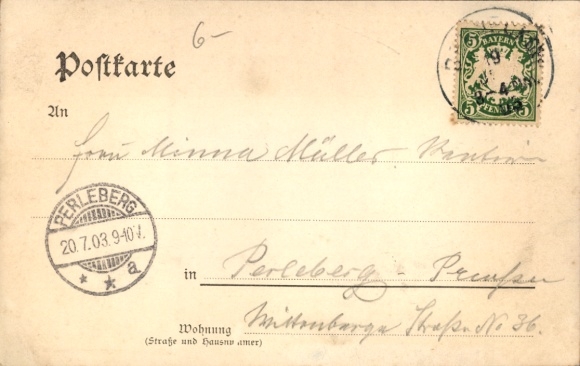 6-
Postkarte
5 BAYERN 5
5 PFENNIG 5
19
An
Frau Minna Müller.
PERLEBERG
20.7.03.9-10V.
* * a
in Perleberg - Preußen
Wittenberge Straße No 36.
Wohnung
(Straße und Hausnummer)